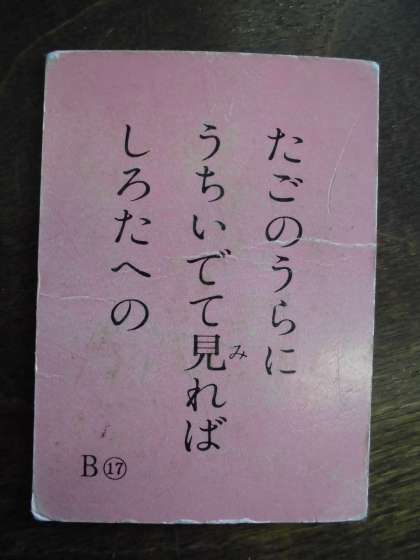 たごのうらに
うちいでて見れば
み
しろたへの
B⑰